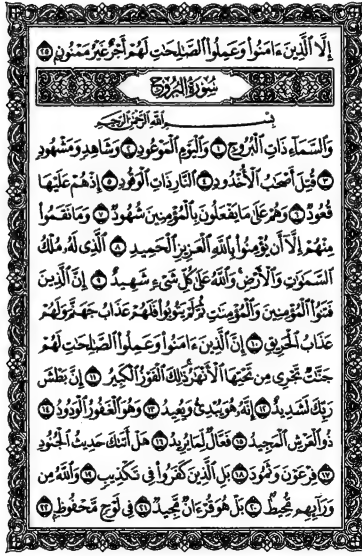 إِلَّا ٱلَّذِينَ ءَامَنُوا۟ وَعَمِلُوا۟ ٱلصَّـٰلِحَـٰتِ لَهُمْ أَجْرٌ غَيْرُ مَمْنُونٍۭ ٢٥
سُورَةُ البُرُوجِ
بِسْمِ ٱللَّهِ ٱلرَّحْمَـٰنِ ٱلرَّحِيمِ
وَٱلسَّمَآءِ ذَاتِ ٱلْبُرُوجِ ١ وَٱلْيَوْمِ ٱلْمَوْعُودِ ٢ وَشَاهِدٍ وَمَشْهُودٍ
٣ قُتِلَ أَصْحَـٰبُ ٱلْأُخْدُودِ ٤ ٱلنَّارِ ذَاتِ ٱلْوَقُودِ ٥ إِذْ هُمْ عَلَيْهَا
قُعُودٌ ٦ وَهُمْ عَلَىٰ مَا يَفْعَلُونَ بِٱلْمُؤْمِنِينَ شُهُودٌ ٧ وَمَا نَقَمُوا۟
مِنْهُمْ إِلَّآ أَن يُؤْمِنُوا۟ بِٱللَّهِ ٱلْعَزِيزِ ٱلْحَمِيدِ ٨ ٱلَّذِى لَهُۥ مُلْكُ
ٱلسَّمَـٰوَٰتِ وَٱلْأَرْضِ وَٱللَّهُ عَلَىٰ كُلِّ شَىْءٍ شَهِيدٌ ٩ إِنَّ ٱلَّذِينَ
فَتَنُوا۟ ٱلْمُؤْمِنِينَ وَٱلْمُؤْمِنَـٰتِ ثُمَّ لَمْ يَتُوبُوا۟ فَلَهُمْ عَذَابُ جَهَنَّمَ وَلَهُمْ
عَذَابُ ٱلْحَرِيقِ ١٠ إِنَّ ٱلَّذِينَ ءَامَنُوا۟ وَعَمِلُوا۟ ٱلصَّـٰلِحَـٰتِ لَهُمْ
جَنَّـٰتٌ تَجْرِى مِن تَحْتِهَا ٱلْأَنْهَـٰرُ ذَٰلِكَ ٱلْفَوْزُ ٱلْكَبِيرُ ١١ إِنَّ بَطْشَ
رَبِّكَ لَشَدِيدٌ ١٢ إِنَّهُۥ هُوَ يُبْدِئُ وَيُعِيدُ ١٣ وَهُوَ ٱلْغَفُورُ ٱلْوَدُودُ ١٤
ذُو ٱلْعَرْشِ ٱلْمَجِيدُ ١٥ فَعَّالٌ لِّمَا يُرِيدُ ١٦ هَلْ أَتَىٰكَ حَدِيثُ ٱلْجُنُودِ
١٧ فِرْعَوْنَ وَثَمُودَ ١٨ بَلِ ٱلَّذِينَ كَفَرُوا۟ فِى تَكْذِيبٍ ١٩ وَٱللَّهُ مِن
وَرَآئِهِم مُّحِيطٌۢ ٢٠ بَلْ هُوَ قُرْءَانٌ مَّجِيدٌ ٢١ فِى لَوْحٍ مَّحْفُوظٍۭ ٢٢